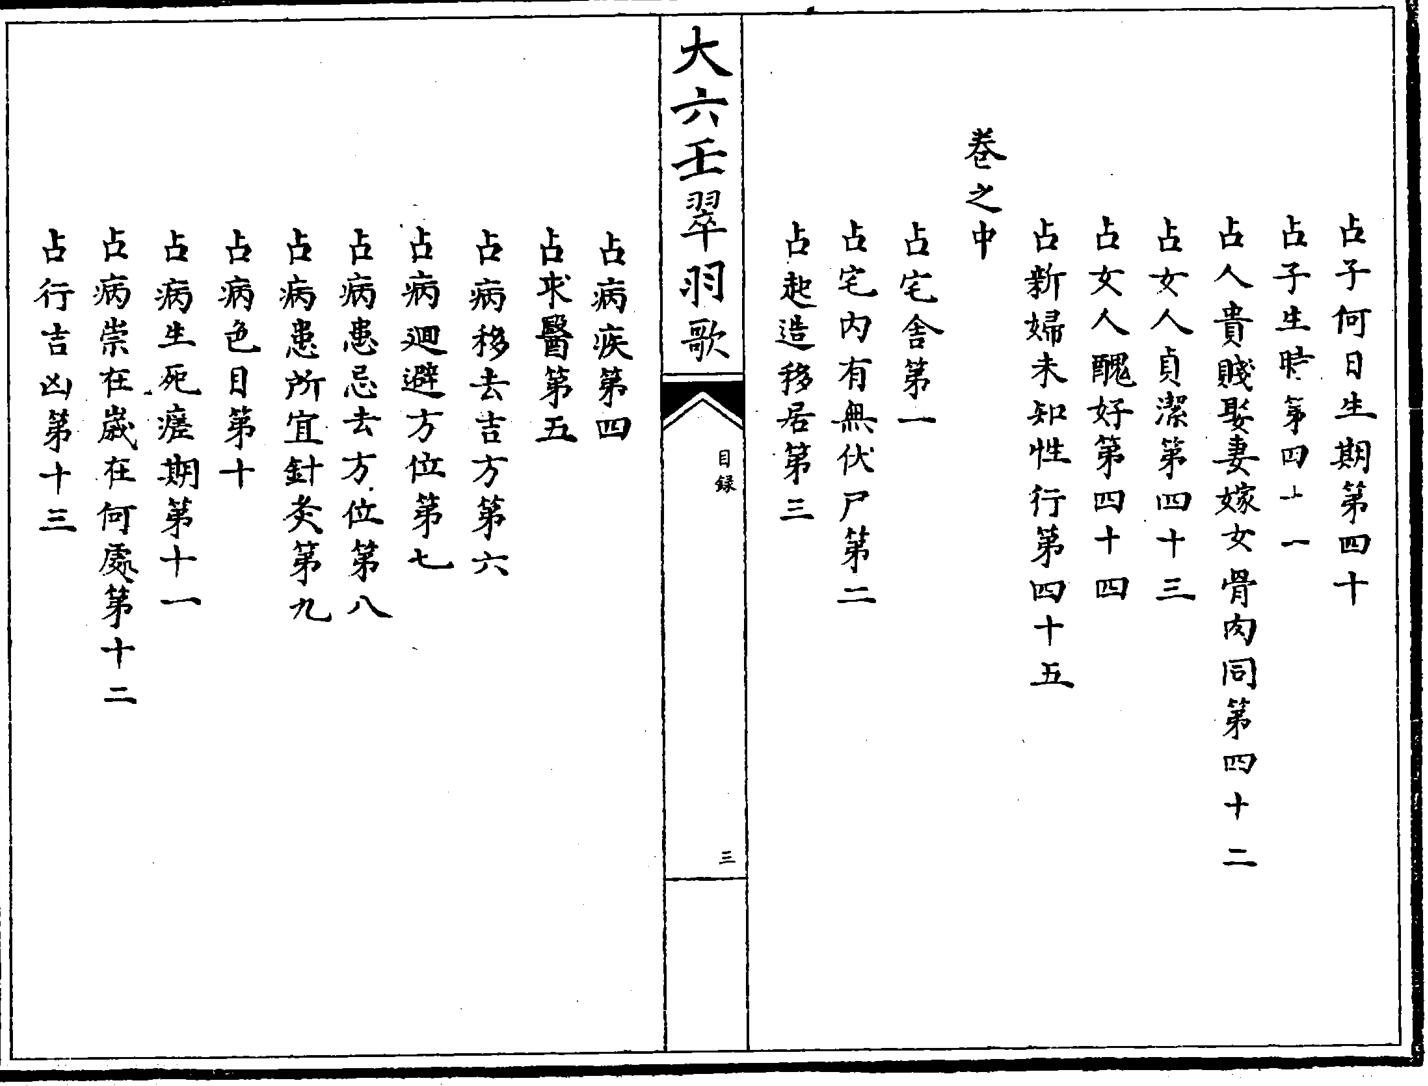 占子何日生期第四十
占子生時第四十一
占人貴賤娶妻嫁女骨肉同第四十二
占女人貞潔第四十三
占女人醜好第四十四
占新婦未知性行第四十五
卷之中
占宅舍第一
占宅內有無伏尸第二
占起造移居第三
大六壬翠羽歌
目録
三
占病疾第四
占求醫第五
占病移去吉方第六
占病迴避方位第七
占病患忌去方位第八
占病患所宜針灸第九
占病色目第十
占病生死瘥期第十一
占病崇在歲在何處第十二
占行吉凶第十三